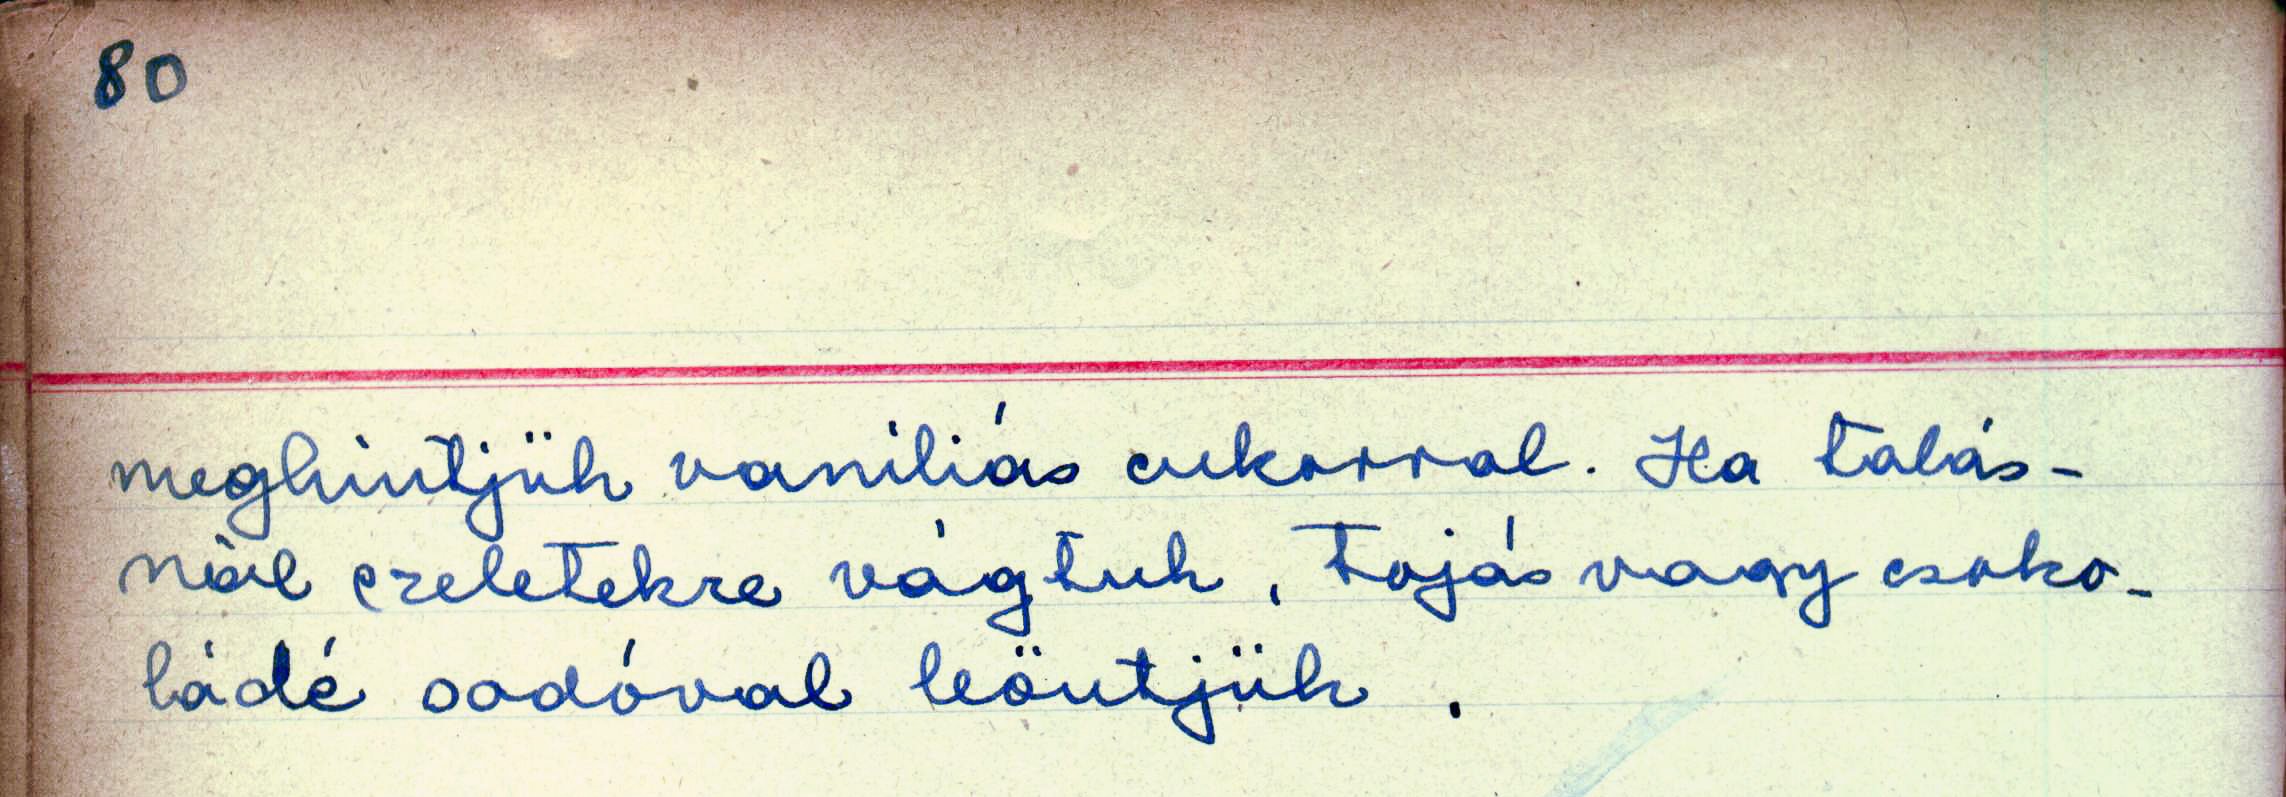 80
meghintjük vaniliás cukorral. Ha talás-
nál szeletekre vágtuk, tojás vagy csoko-
ládé sodóval leöntjük.